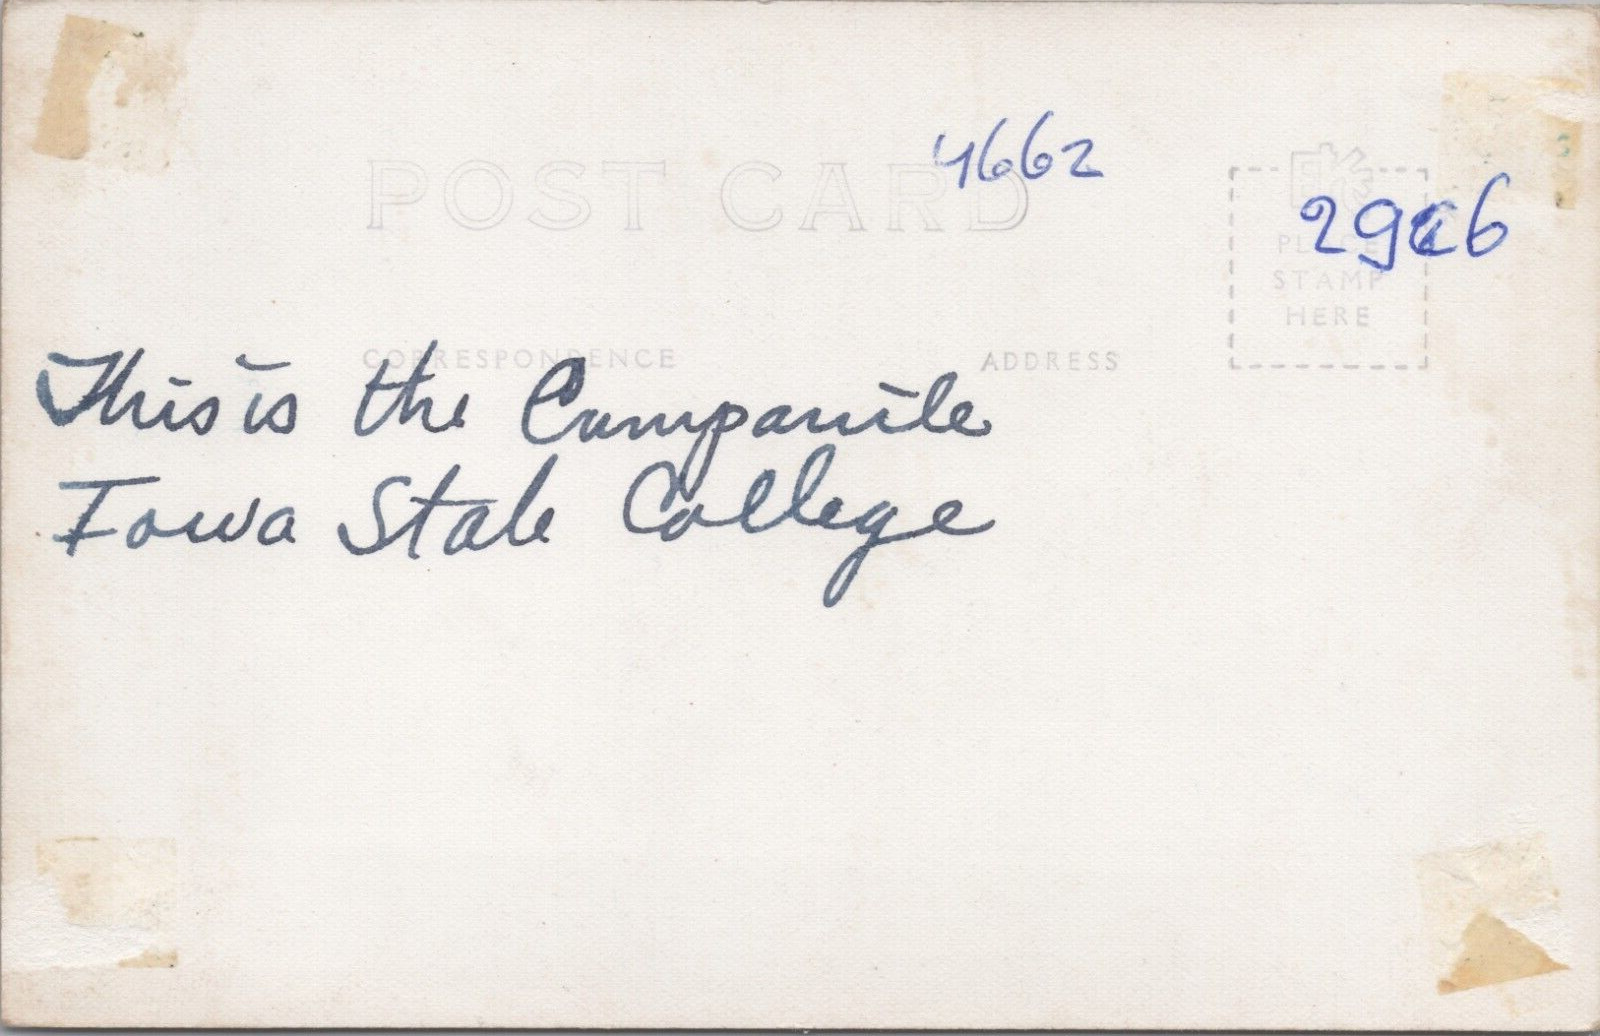 4662
POST CARD
EK
PLACE
STAMP
HERE
CORRESPONDENCE
ADDRESS
This is the Campanile
Iowa State College